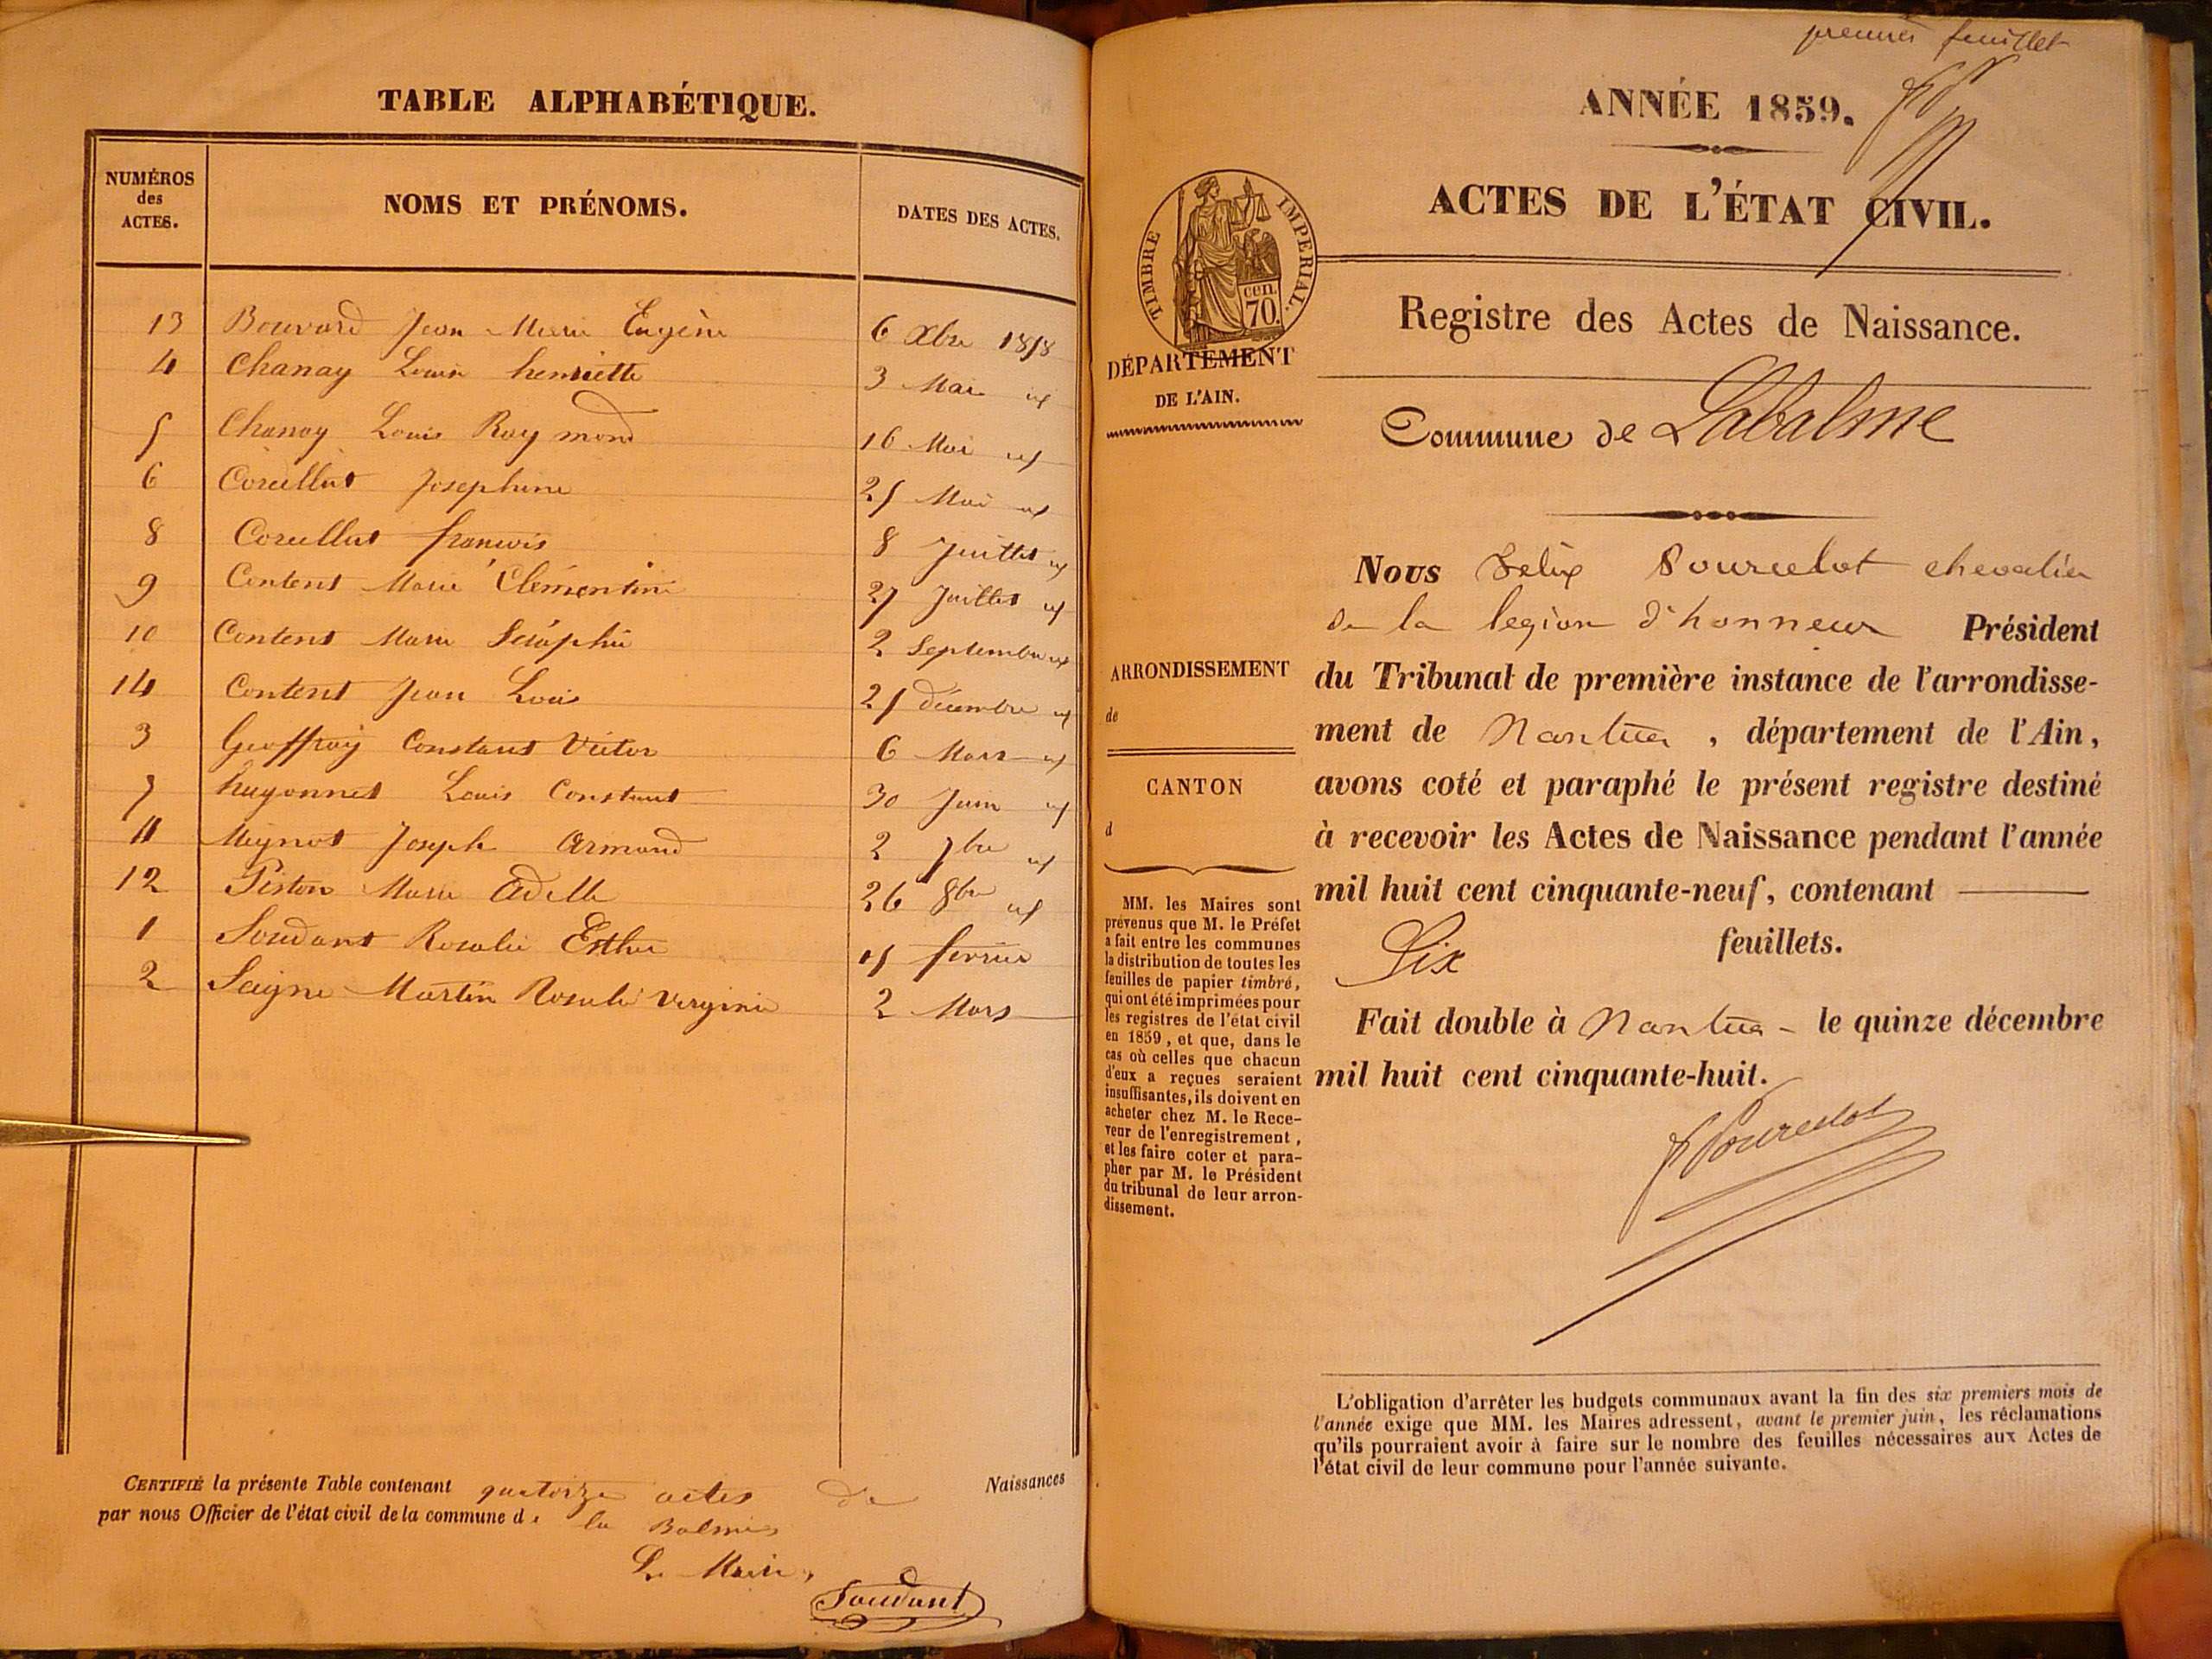 TABLE ALPHABÉTIQUE.
NUMÉROS
des
ACTES.
NOMS ET PRÉNOMS.
DATES DES ACTES.
13 Bouvard Jean Marie Eugène 6 Xbre 1858
4 Chanay Louise henriette 3 Mai id
5 Chanay Louis Raymond 16 Mai id
6 Josephine 25 Mai id
8 francois 8 Juillet id
9 Content Marie Clémentine 27 Juillet id
10 Content Marie Séraphie 2 Septembre id
14 Content Jean Louis 25 décembre id
3 Geoffray Constant Victor 6 Mars id
7 hugonnet Louis Constant 30 Juin id
11 Mignot Joseph Armand 2 7bre id
12 Piston Marie Adelle 26 8bre id
1 Soudant Rosalie Esther 15 fevrier
2 Seigne Martin Rosalie Verginie 2 Mars
CERTIFIÉ la présente Table contenant quatorze actes de Naissances
par nous Officier de l'état civil de la commune de la Balme
Le Maire,
Soudant
premier feuillet
ANNÉE 1859.
ACTES DE L'ÉTAT CIVIL.
TIMBRE IMPERIAL.
cen.
70.
DÉPARTEMENT
DE L'AIN.
Registre des Actes de Naissance.
Commune de Labalme
Nous Felix Pourcelot chevalier
de la legion d'honneur Président
du Tribunal de première instance de l'arrondisse-
ment de Nantua, département de l'Ain,
avons coté et paraphé le présent registre destiné
à recevoir les Actes de Naissance pendant l'année
mil huit cent cinquante-neuf, contenant
Six feuillets.
Fait double à Nantua le quinze décembre
mil huit cent cinquante-huit.
F Pourcelot
ARRONDISSEMENT
de
CANTON
d
MM. les Maires sont
prévenus que M. le Préfet
a fait entre les communes
la distribution de toutes les
feuilles de papier timbré,
qui ont été imprimées pour
les registres de l'état civil
en 1859, et que, dans le
cas où celles que chacun
d'eux a reçues seraient
insuffisantes, ils doivent en
acheter chez M. le Rece-
veur de l'enregistrement,
et les faire coter et para-
pher par M. le Président
du tribunal de leur arron-
dissement.
L'obligation d'arrêter les budgets communaux avant la fin des six premiers mois de
l'année exige que MM. les Maires adressent, avant le premier juin, les réclamations
qu'ils pourraient avoir à faire sur le nombre des feuilles nécessaires aux Actes de
l'état civil de leur commune pour l'année suivante.